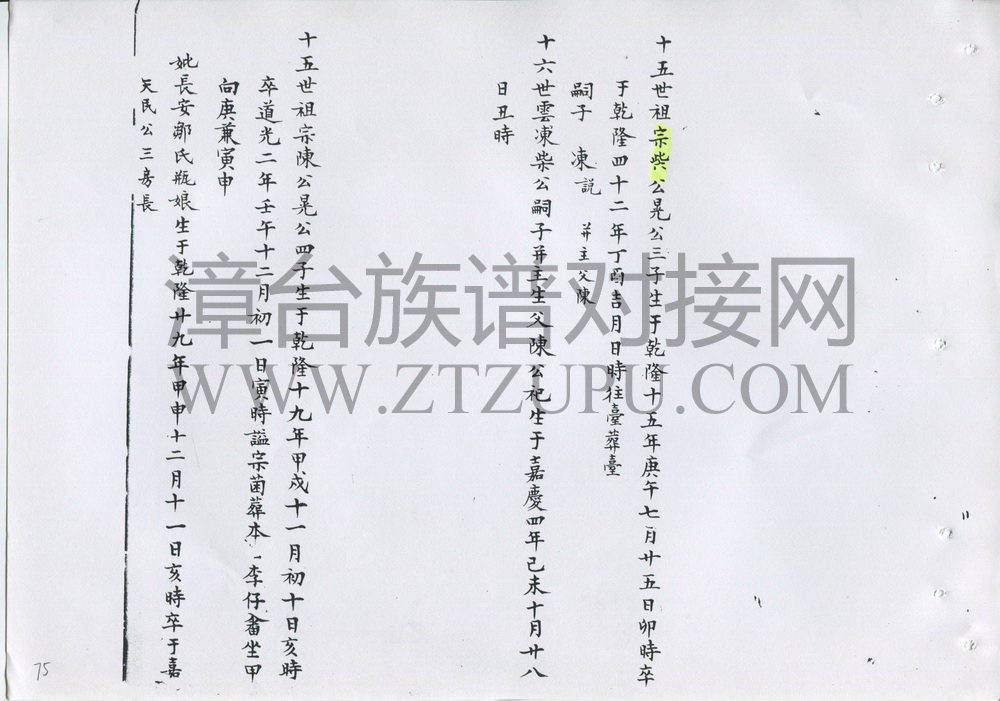 十五世祖宗柴公晃公三子生于乾隆十五年庚午七月廿五日卯時卒
于乾隆四十二年丁酉吉月日時往臺葬臺
嗣子 凍説 并主父陳
十六世雲凍柴公嗣子并主生父陳公祀生于嘉慶四年己未十月廿八
日丑時
十五世祖宗陳公晃公四子生于乾隆十九年甲戍十一月初十日亥時
卒道光二年壬午十二月初一日寅時謚宗菌葬本 李仔畲坐甲
向庚兼寅申
妣長安鄒氏瓶娘生于乾隆廿九年甲申十二月十一日亥時卒于嘉
天民公三房長
75
漳台族谱对接网
WWW.ZTZUPU.COM